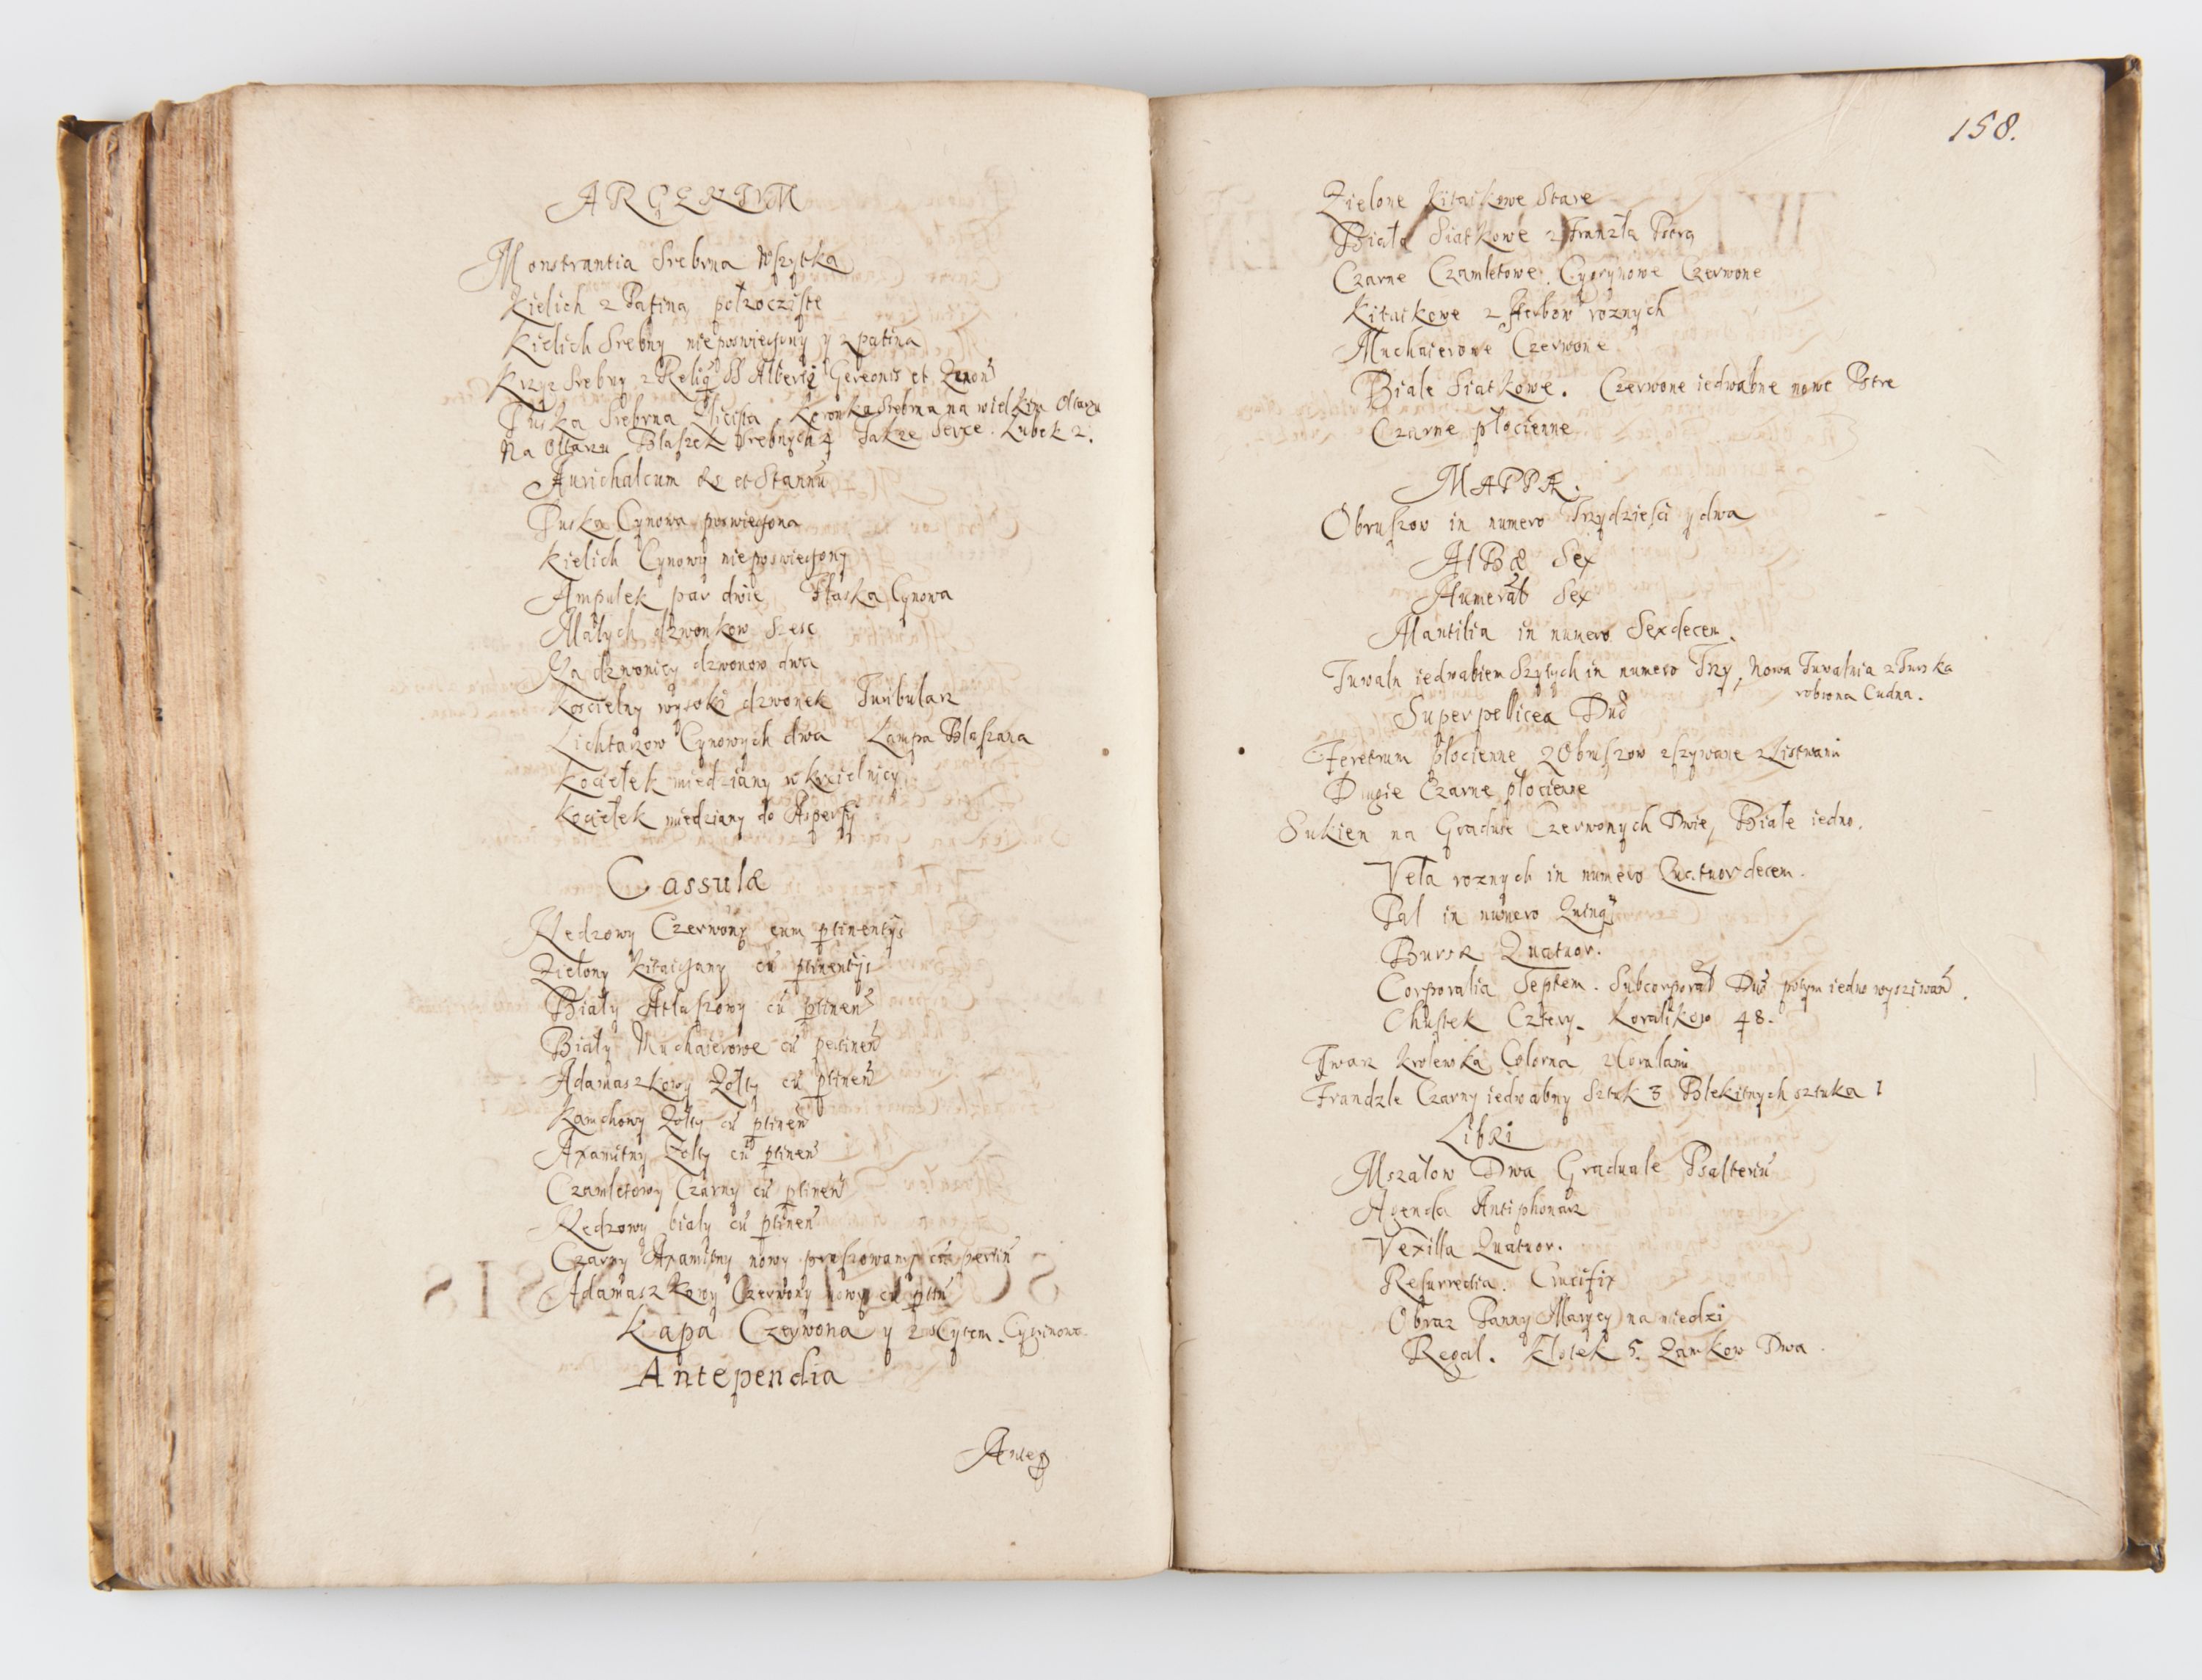 ARGENTVM
Monstrantia Srebrna wszytka
Kielich z Patina pozłoczyste
Kielich Srebny nieposwięcony y z patina
Krzyz Srebny z Reliq̃ SS Alberti Gereonis et
Puska Srebrna Koronka Srebrna na wielkim Oltarzu
Na Oltarzu Blaszek Srebnych 4 Takze Serce. Lubek 2.
Aurichalcum æs et Stannū
Puska Cynowa poswięcona
Kielich Cynowy nieposwięcony
Ampułek par dwie Flaska Cynowa
Małych dzwonkow szesc
Na dzwonicy dzwonow dwa
Koscielny wysoki dzwonek Turibularz
Lichtarzow Cynowych dwa Lampa Blaszana
Kociełek miedziany w krzcielnicy
Kociełek miedziany do Aspersij
Cassulæ
Czerwony cum ꝑtinentijs
Zielony Kitaiczany cū ꝑtinentijs
Biały Atłaszowy cū ꝑtineñ
Biały Muchaierowe cū pertineñ
Adamaszkowy Zołty cū ꝑtineñ
Kamchowy Zołty cū ꝑtineñ
Axamitny Zołty cū ꝑtineñ
Czamletowy Czarny cū ꝑtineñ
biały cū ꝑtineñ
Czarny Axamitny nowy cū pertiñ
Adamaszkowy Czerwony nowy cū ꝑtiñ
Kapa Czerwona y
Antependia
Anteꝑ
158.
Zielone Kitaikowe Stare
Białe Siatkowe z
Czarne Czamletowe. Cyprynowe Czerwone
Kitaikowe z Herbow roznych
Muchaierowe Czerwone
Białe Siatkowe. Czerwone iedwabne nowe Pstre
Czarne płocienne
MAPPÆ.
Obruszow in numero Trzydziesci y dwa
AlBæ Sex
Sex
Mantilia in numero Sexdecem.
Tuwaln iedwabiem Szytych in numero Trzy, Nowa Tuwalnia z Turska
robiona Cudna.
Superpellicea Duo
Feretrum płocienne z Obruszow zszywane z Listwami
Drugie Czarne płocienne
Sukien na Graduse Czerwonych Dwie, Białe iedno.
Vela roznych in numero Quatuordecem.
Pal in numero Quinq̃
Bursæ Quatuor.
Corporalia Septem. Duo iedno
Chustek Cztery. Koralikow 48.
Twarz krolewska
Frandzle Czarny iedwabny Sztuk 3 Błekitnych sztuka 1
Libri
Mszałow Dwa Graduale Psalteriū
Agenda Antiphonarz
Vexilla Quatuor.
Resurrectia. Crucifix
Obraz Panny Maryey na miedzi
Regal. Klotek 5. Zamkow Dwa.